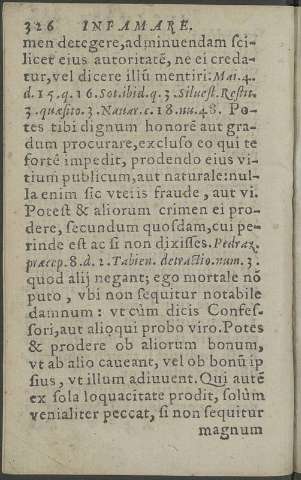 326 INFAMARE.
men detegere,adminuendam sci-
licet eius autoritatē, ne ei creda-
tur,vel dicere illū mentiri. Mai.4.
d.15.q.16.Sot.ibid.q.3.Siluest.Restit.
3.quæsito.3.Nauar.c.18.nu.48. Po-
tes tibi dignum honorē aut gra-
dum procurare,excluso eo qui te
fortè impedit, prodendo eius vi-
tium publicum,aut naturale:nul-
la enim sic vteris fraude , aut vi.
Potest & aliorum crimen ei pro-
dere, secundum quosdam,cui pe-
rinde est ac si non dixisses. Pedraz.
præcep.8.d.1.Tabien. detractio.num.3.
quod alij negant; ego mortale nō
puto , vbi non sequitur notabile
damnum : vt cùm dicis Confes-
sori,aut alioqui probo viro.Potes
& prodere ob aliorum bonum,
vt ab alio caueant, vel ob bonū ip
sius , vt illum adiuuent. Qui autē
ex sola loquacitate prodit, solùm
venialiter peccat, si non sequitur
magnum